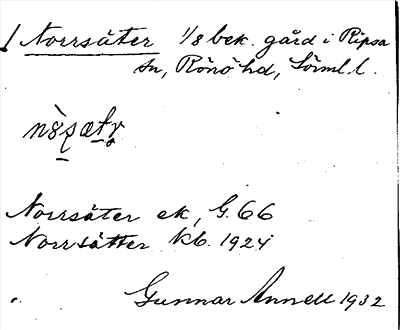 Norrsäter 1/8 bek. gård i Ripsa
sn, Rönö hd, Sörml. l.
Norrsäter ek, G. 66
Norrsätter kb. 1924
Gunnar Annell 1932